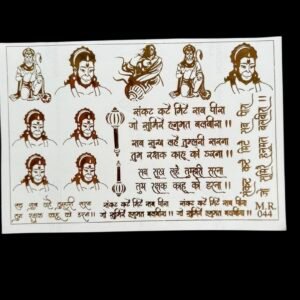 संकट कटै मिटै सब पीरा
जो सुमिरै हनुमत बलबीरा
सब सुख लहै तुम्हारी सरना
तुम रक्षक काहू को डरना।।
सब सुख लहै तुम्हारी सरना
तुम रक्षक काहू को डरना।।
सब सुख लहै तुम्हारी सरना
तुम रक्षक काहू को डरना।।
संकट कटै मिटै सब पीरा
जो सुमिरै हनुमत बलबीरा।।
संकट कटै मिटै सब पीरा
जो सुमिरै हनुमत बलबीरा।।
संकट कटै मिटै सब पीरा
जो सुमिरै हनुमत बलबीरा।।
M.R.
044